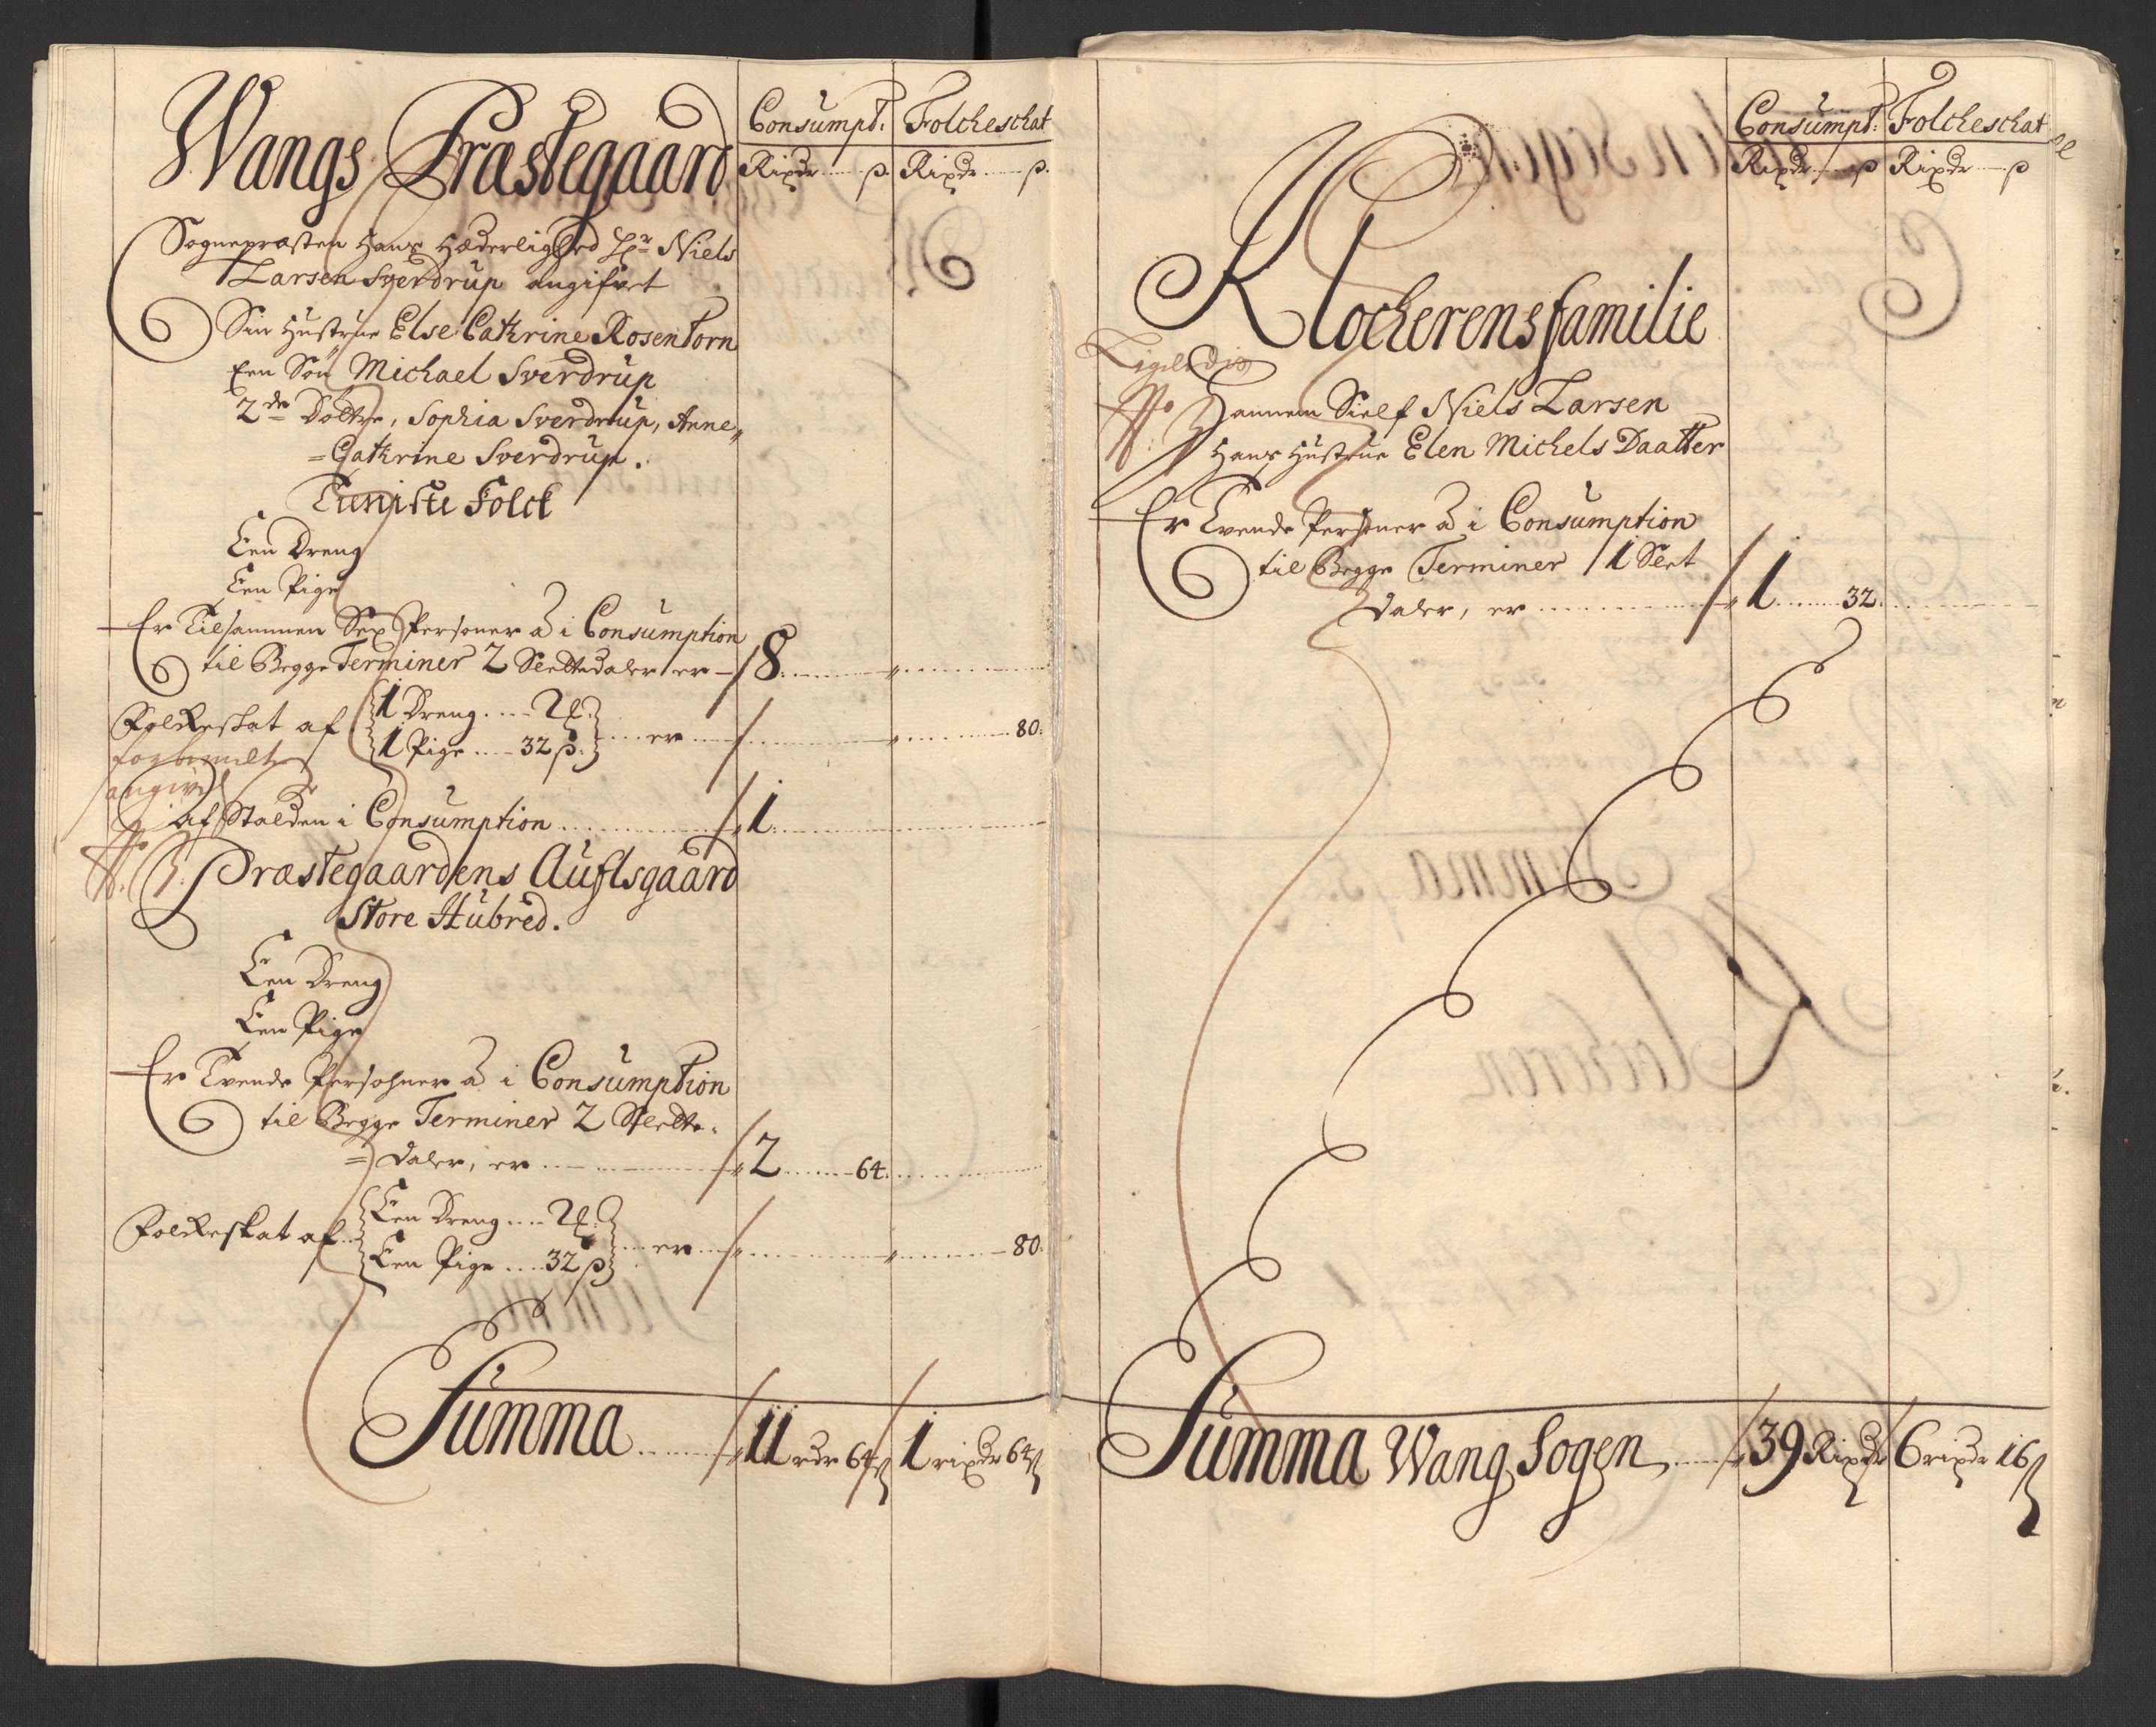 Wangs Præstegaard
Consumpt: Folcheschat
Rixdr ß. Rixdr ß.
Sognepræsten Hans Hæderlighed Hr Niels
Larsen Sverdrup angifvet
Sin Hustrue Else Cathrine Rosentorn
Een Søn Michael Sverdrup
2de Døttre, Sophia Sverdrup, Anne
=Cathrine Sverdrup.
Tieniste Folck
Een Dreng
Een Pige
Er Tilsammen Sex Persones á i Consumption
til Begge Terminer 2 Slettedaler er 8
Folkeskat af 1 Dreng
1 Pige 32 ß. er 80.
forbemelte
angivet
Af Stalden i Consumption 1
Præstegaardens Auflsgaard
Store Hubred.
Een Dreng
Een Pige
Er Tvende Persohner á i Consumption
til Begge Terminer 2 Slette
=daler, er 2 64.
Folkeskat af Een Dreng
Een Pige 32 ß er 80.
Summa 11 rdr 64 ß 1 rixdr 64 ß
Consumpt: Folcheschat
Rixdr ß Rixdr ß
Klocherens familie
Ligeledis
Hannem Sielf Niels Larsen
Hans Hustrue Elen Michels Daatter
Er Tvende Personer á i Consumption
til Begge Terminer 1 Slet
daler, er 1 32.
Summa Wang Sogen 39 Rixdr 6 rixdr 16 ß